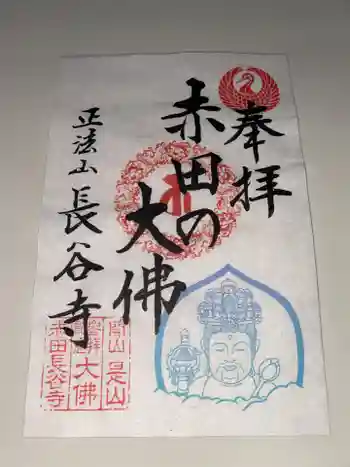 奉拝
赤田の
大佛
正法山長谷寺
開山是山
大佛
赤田長谷寺